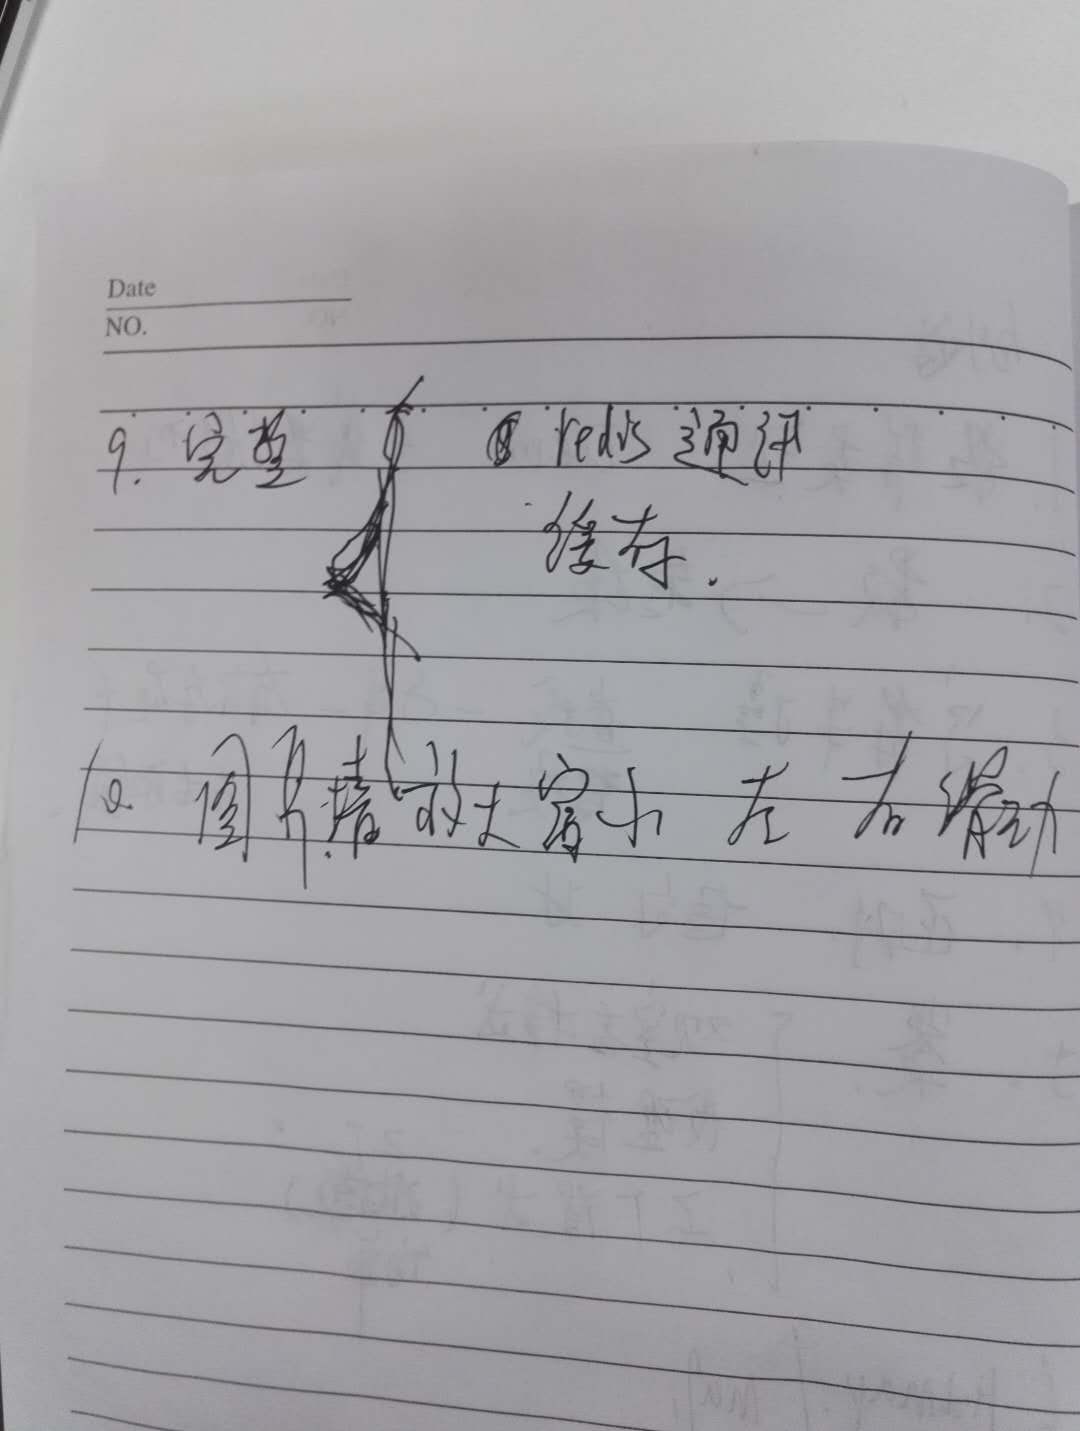 Date
NO.
9. 完整 redis 通讯
缓存.
10. 图片墙 放大缩小 左右滑动